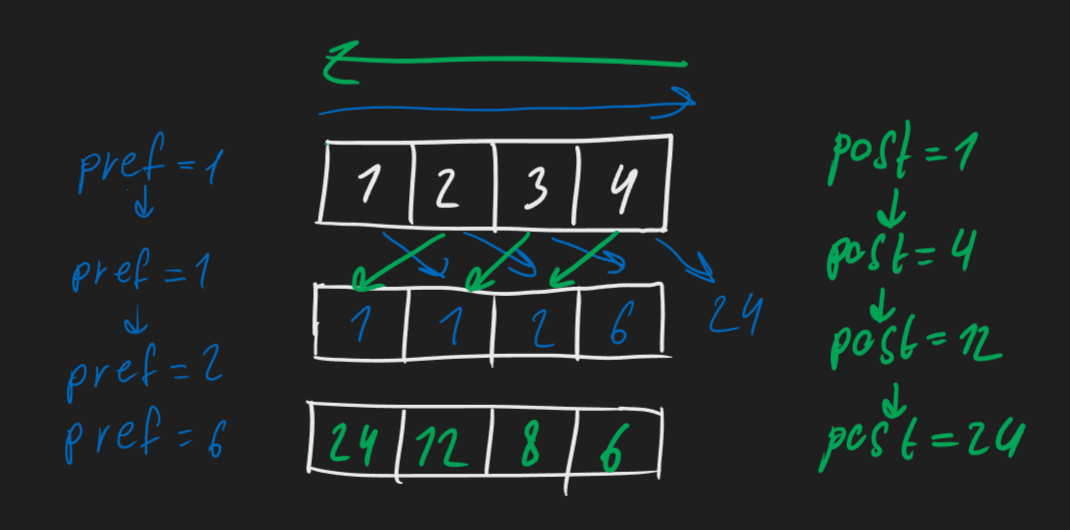 pref = 1
↓
pref = 1
↓
pref = 2
pref = 6
1 2 3 4
1 1 2 6 24
24 12 8 6
post = 1
↓
post = 4
↓
post = 12
↓
post = 24